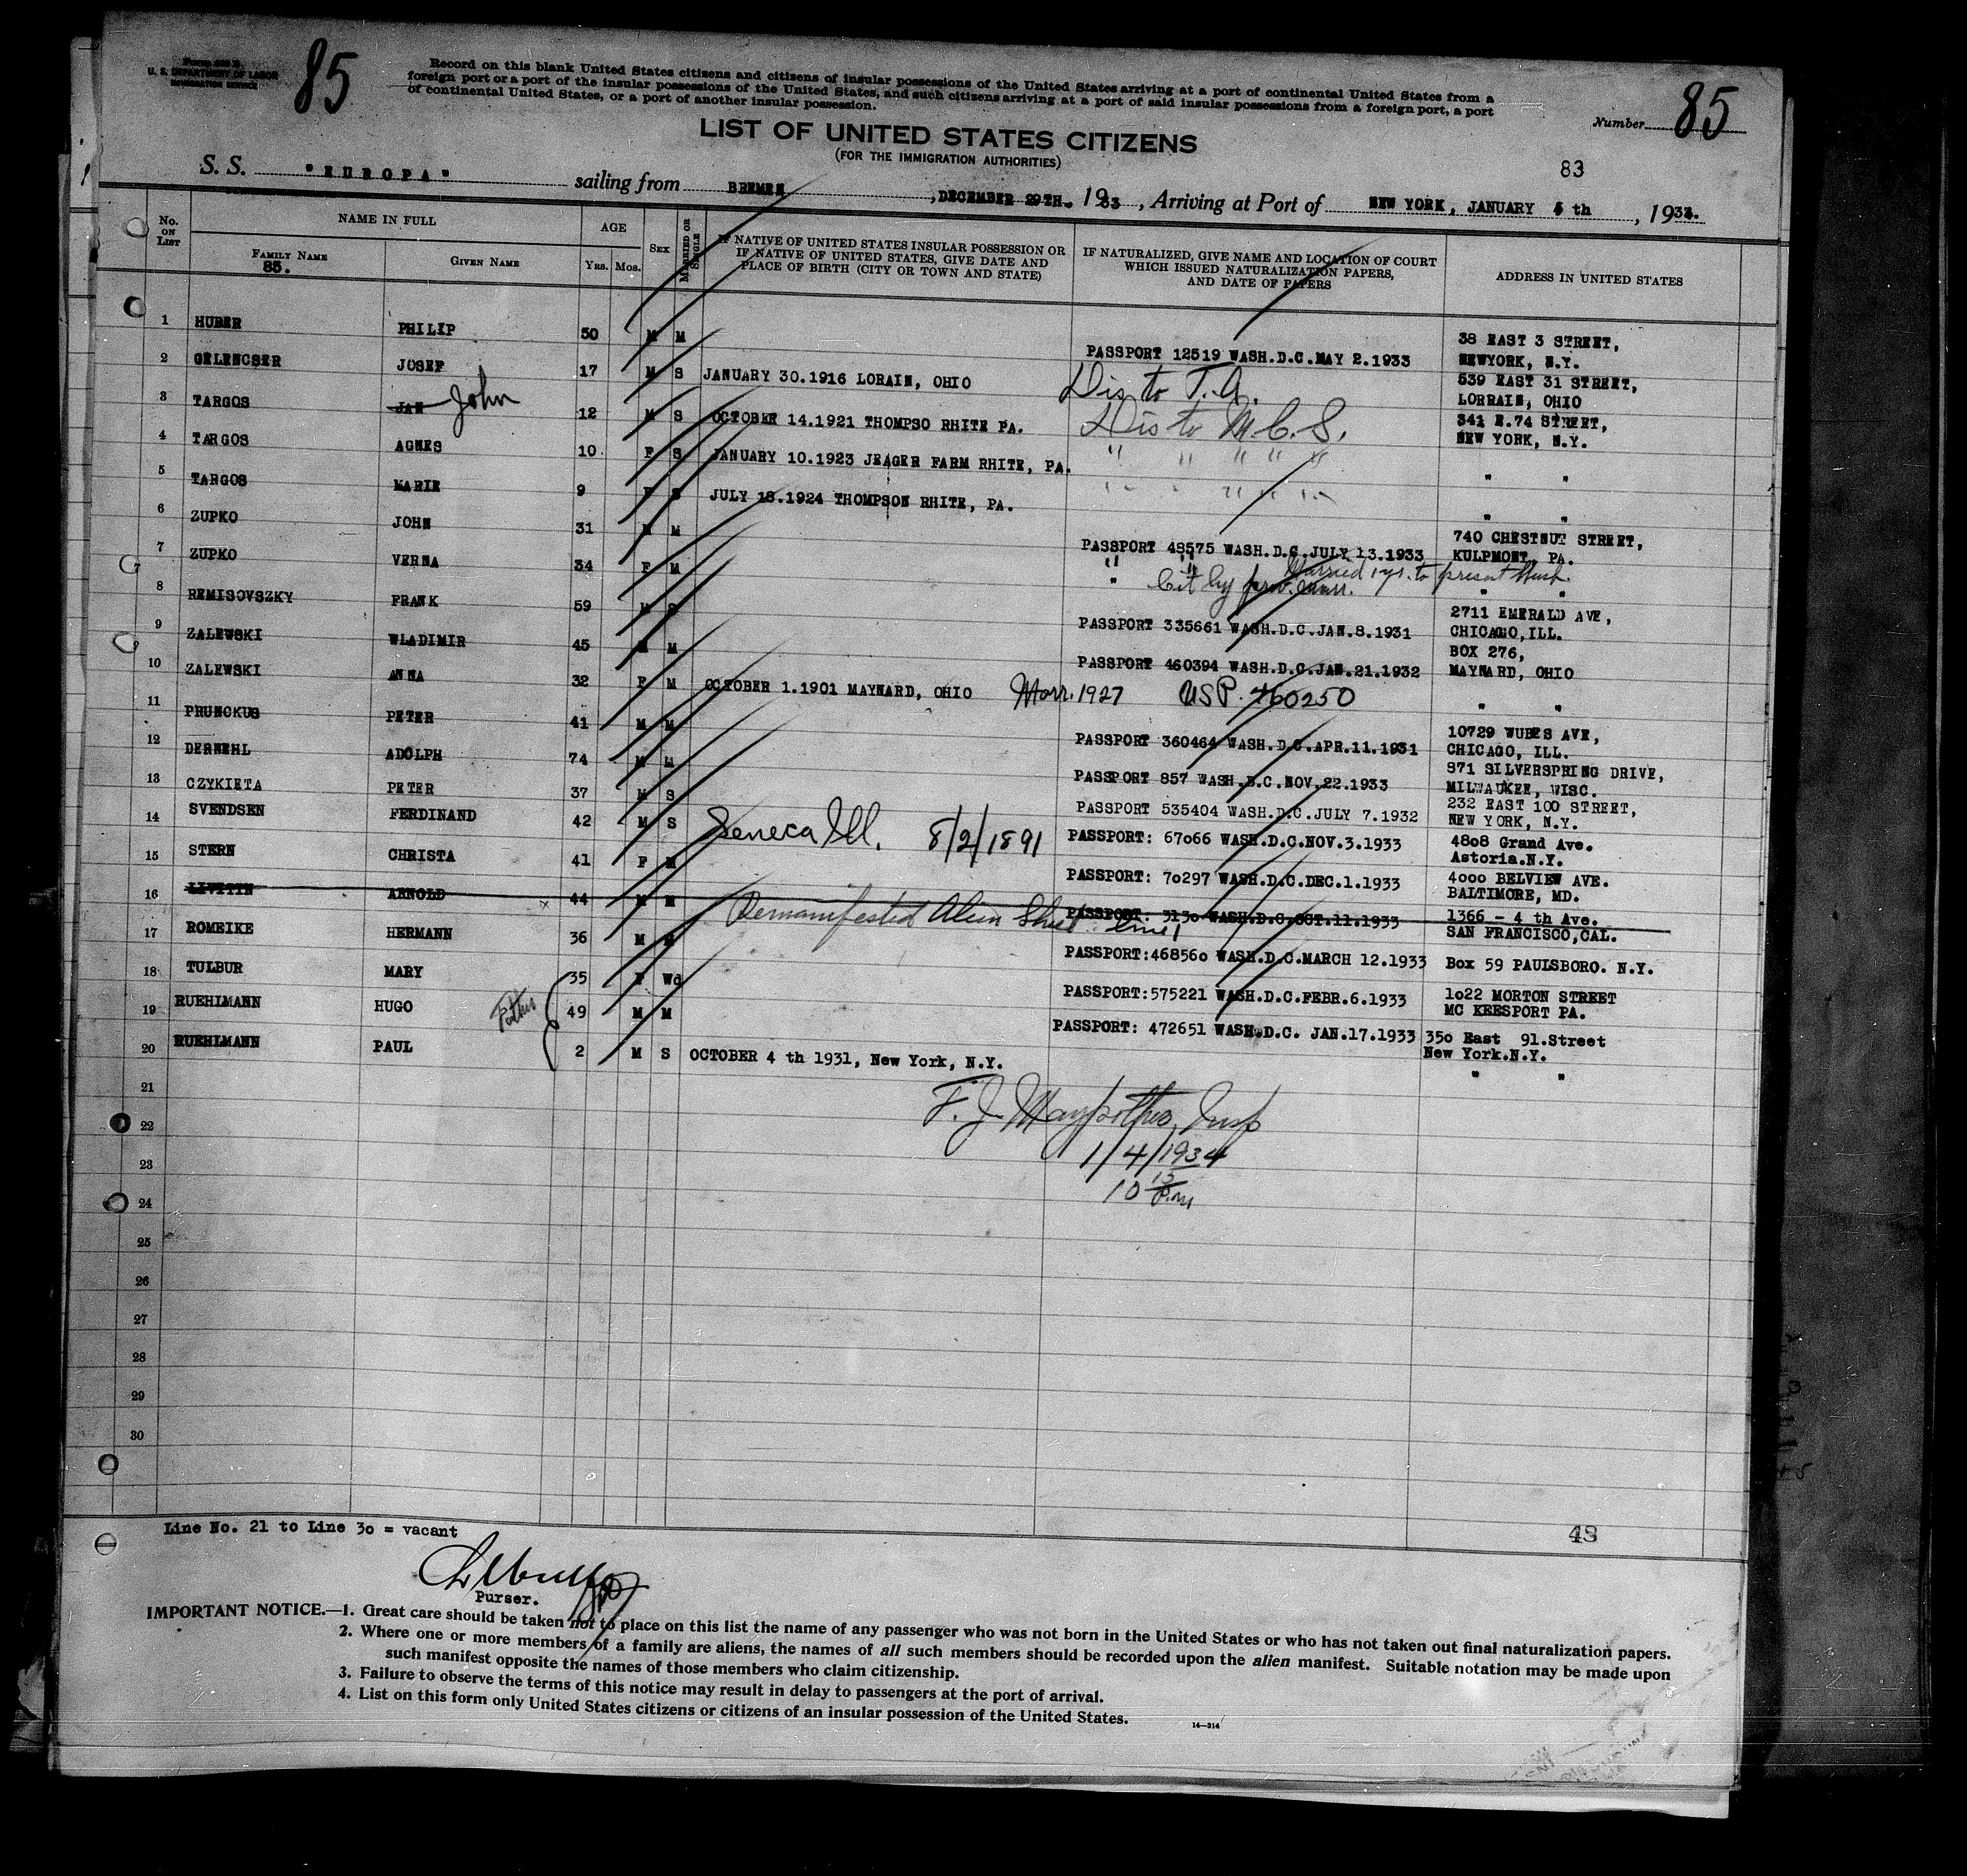 Form 630 B
U. S. DEPARTMENT OF LABOR
IMMIGRATION SERVICE
85
Record on this blank United States citizens and citizens of insular possessions of the United States arriving at a port of continental United States from a
foreign port or a port of the insular possessions of the United States, and such citizens arriving at a port of said insular possessions from a foreign port, a port
of continental United States, or a port of another insular possession.
Number 85
LIST OF UNITED STATES CITIZENS
(FOR THE IMMIGRATION AUTHORITIES)
83
S. S. "EUROPA" sailing from BREMEN, DECEMBER 29TH. 1933, Arriving at Port of NEW YORK, JANUARY 5 th, 1934.
No. ON LIST
NAME IN FULL
FAMILY NAME
85.
GIVEN NAME
AGE
Yrs. Mos.
SEX
MARRIED OR SINGLE
IF NATIVE OF UNITED STATES INSULAR POSSESSION OR
IF NATIVE OF UNITED STATES, GIVE DATE AND
PLACE OF BIRTH (CITY OR TOWN AND STATE)
IF NATURALIZED, GIVE NAME AND LOCATION OF COURT
WHICH ISSUED NATURALIZATION PAPERS,
AND DATE OF PAPERS
ADDRESS IN UNITED STATES
1 HUBER PHILIP 50 M M PASSPORT 12519 WASH.D.C.MAY 2.1933 38 EAST 3 STREET,
NEWYORK, N.Y.
2 GELENCSER JOSEF 17 M S JANUARY 30.1916 LORAIN, OHIO Dis to T.A. 539 EAST 31 STREET,
LORRAIN, OHIO
3 TARGOS JAN John 12 M S OCTOBER 14.1921 THOMPSO RHITE PA. Dis to M.C.S. 341 E.74 STREET,
NEW YORK, N.Y.
4 TARGOS AGNES 10 F S JANUARY 10.1923 JEAGER FARM RHITE, PA. " " " " " " "
5 TARGOS MARIE 9 F S JULY 18.1924 THOMPSON RHITE, PA. " " " " " " "
6 ZUPKO JOHN 31 M M PASSPORT 48575 WASH.D.C.JULY 13.1933 740 CHESTNUT STREET,
KULPMONT, PA.
7 ZUPKO VERNA 34 F M " " Cit by prev. marr. Married 1 yr. to present husb. " "
8 REMISOVSZKY FRANK 59 M S PASSPORT 335661 WASH.D.C.JAN.8.1931 2711 EMERALD AVE,
CHICAGO, ILL.
9 ZALEWSKI WLADIMIR 45 M M PASSPORT 460394 WASH.D.C.JAN.21.1932 BOX 276,
MAYNARD, OHIO
10 ZALEWSKI ANNA 32 F M OCTOBER 1.1901 MAYNARD, OHIO Marr. 1927 USP. 460250 " "
11 PRUNCKUS PETER 41 M M PASSPORT 360464 WASH.D.C.APR.11.1931 10729 WUBES AVE,
CHICAGO, ILL.
12 DERNEHL ADOLPH 74 M M PASSPORT 857 WASH.D.C.NOV.22.1933 871 SILVERSPRING DRIVE,
MILWAUKEE, WISC.
13 CZYKIETA PETER 37 M S PASSPORT 535404 WASH.D.C.JULY 7.1932 232 EAST 100 STREET,
NEW YORK, N.Y.
14 SVENDSEN FERDINAND 42 M S Seneca Ill. 8/2/1891 PASSPORT: 67066 WASH.D.C.NOV.3.1933 4808 Grand Ave.
Astoria.N.Y.
15 STERN CHRISTA 41 F M PASSPORT: 70297 WASH.D.C.DEC.1.1933 4000 BELVIEW AVE.
BALTIMORE, MD.
16 LIVITIN ARNOLD x 44 M M Remanifested Alien Sheet line 1 PASSPORT: 3130 WASH.D.C.OCT.11.1933 1366 - 4 th Ave.
SAN FRANCISCO,CAL.
17 ROMEIKE HERMANN 36 M M PASSPORT:468560 WASH.D.C.MARCH 12.1933 Box 59 PAULSBORO. N.Y.
18 TULBUR MARY 35 F Wd PASSPORT:575221 WASH.D.C.FEBR.6.1933 1022 MORTON STREET
MC KEESPORT PA.
19 RUEHLMANN HUGO Father 49 M M PASSPORT: 472651 WASH.D.C. JAN.17.1933 350 East 91.Street
New York.N.Y.
20 RUEHLMANN PAUL 2 M S OCTOBER 4 th 1931, New York, N.Y. " "
21
22
23
24
25
26
27
28
29
30
1/4/1934
10 15 P.m
Line No. 21 to Line 30 = vacant
43
Purser.
IMPORTANT NOTICE.—1. Great care should be taken not to place on this list the name of any passenger who was not born in the United States or who has not taken out final naturalization papers.
2. Where one or more members of a family are aliens, the names of all such members should be recorded upon the alien manifest. Suitable notation may be made upon
such manifest opposite the names of those members who claim citizenship.
3. Failure to observe the terms of this notice may result in delay to passengers at the port of arrival.
4. List on this form only United States citizens or citizens of an insular possession of the United States.
14—314